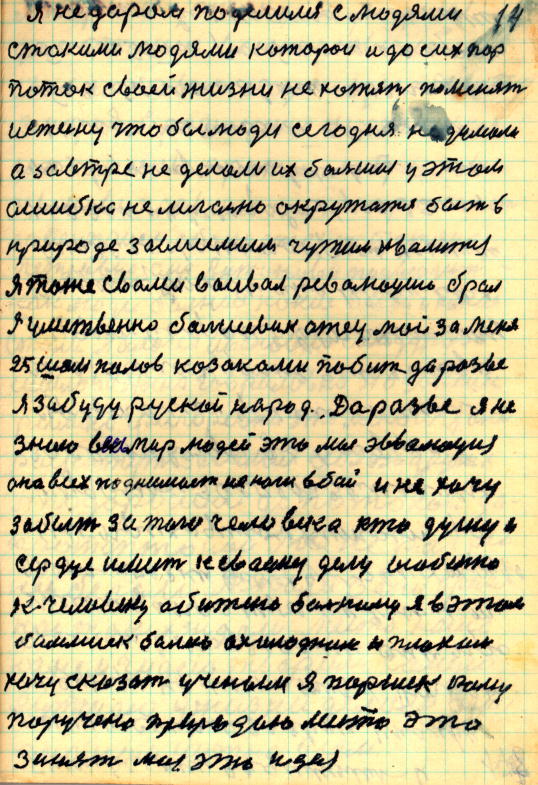 Я не даром поделился с людями 14
с такими людями которои и до сих пор
поток своей жизни не хотят поменят
истену что бы люди сегодня не думали
а завтре не делали их больши у этом
ошибка не лигално окружатя быт в
природе зависемым чужим хвалится
я тоже с вами воивал революцию брал
я умственно большевик отец мой за меня
25 шомполов козаками побит да разве
я забуду руской народ. Да разве я не
знаю весь мир людей это моя эвволюция
она всех поднимает на ноги в бой и не хочу
забыт за того человека кто душу и
сердце имеит к своиму делу особенно
к человеку обижено болному я в этом
болшиек болею охолодним и плохим
хочу сказат ученым я поршек кому
поручено природою место это
занят моя это идея